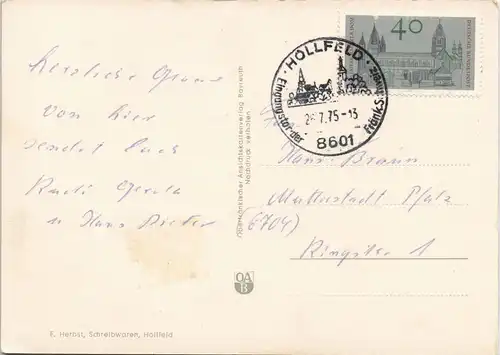 herzliche Grüsse
von hier
sendet Euch
Rudi Gerda
u Hans Dieter
Oberfränkischer Ansichtskartenverlag Bayreuth
Nachdruck verboten
OA
B
E. Herbst, Schreibwaren, Hollfeld
HOLLFELD
Eingangstor der Fränk.Schweiz
7.75-13
8601
40
Hans Braun
Mutterstadt Pfalz
6704)
Ringstr 1